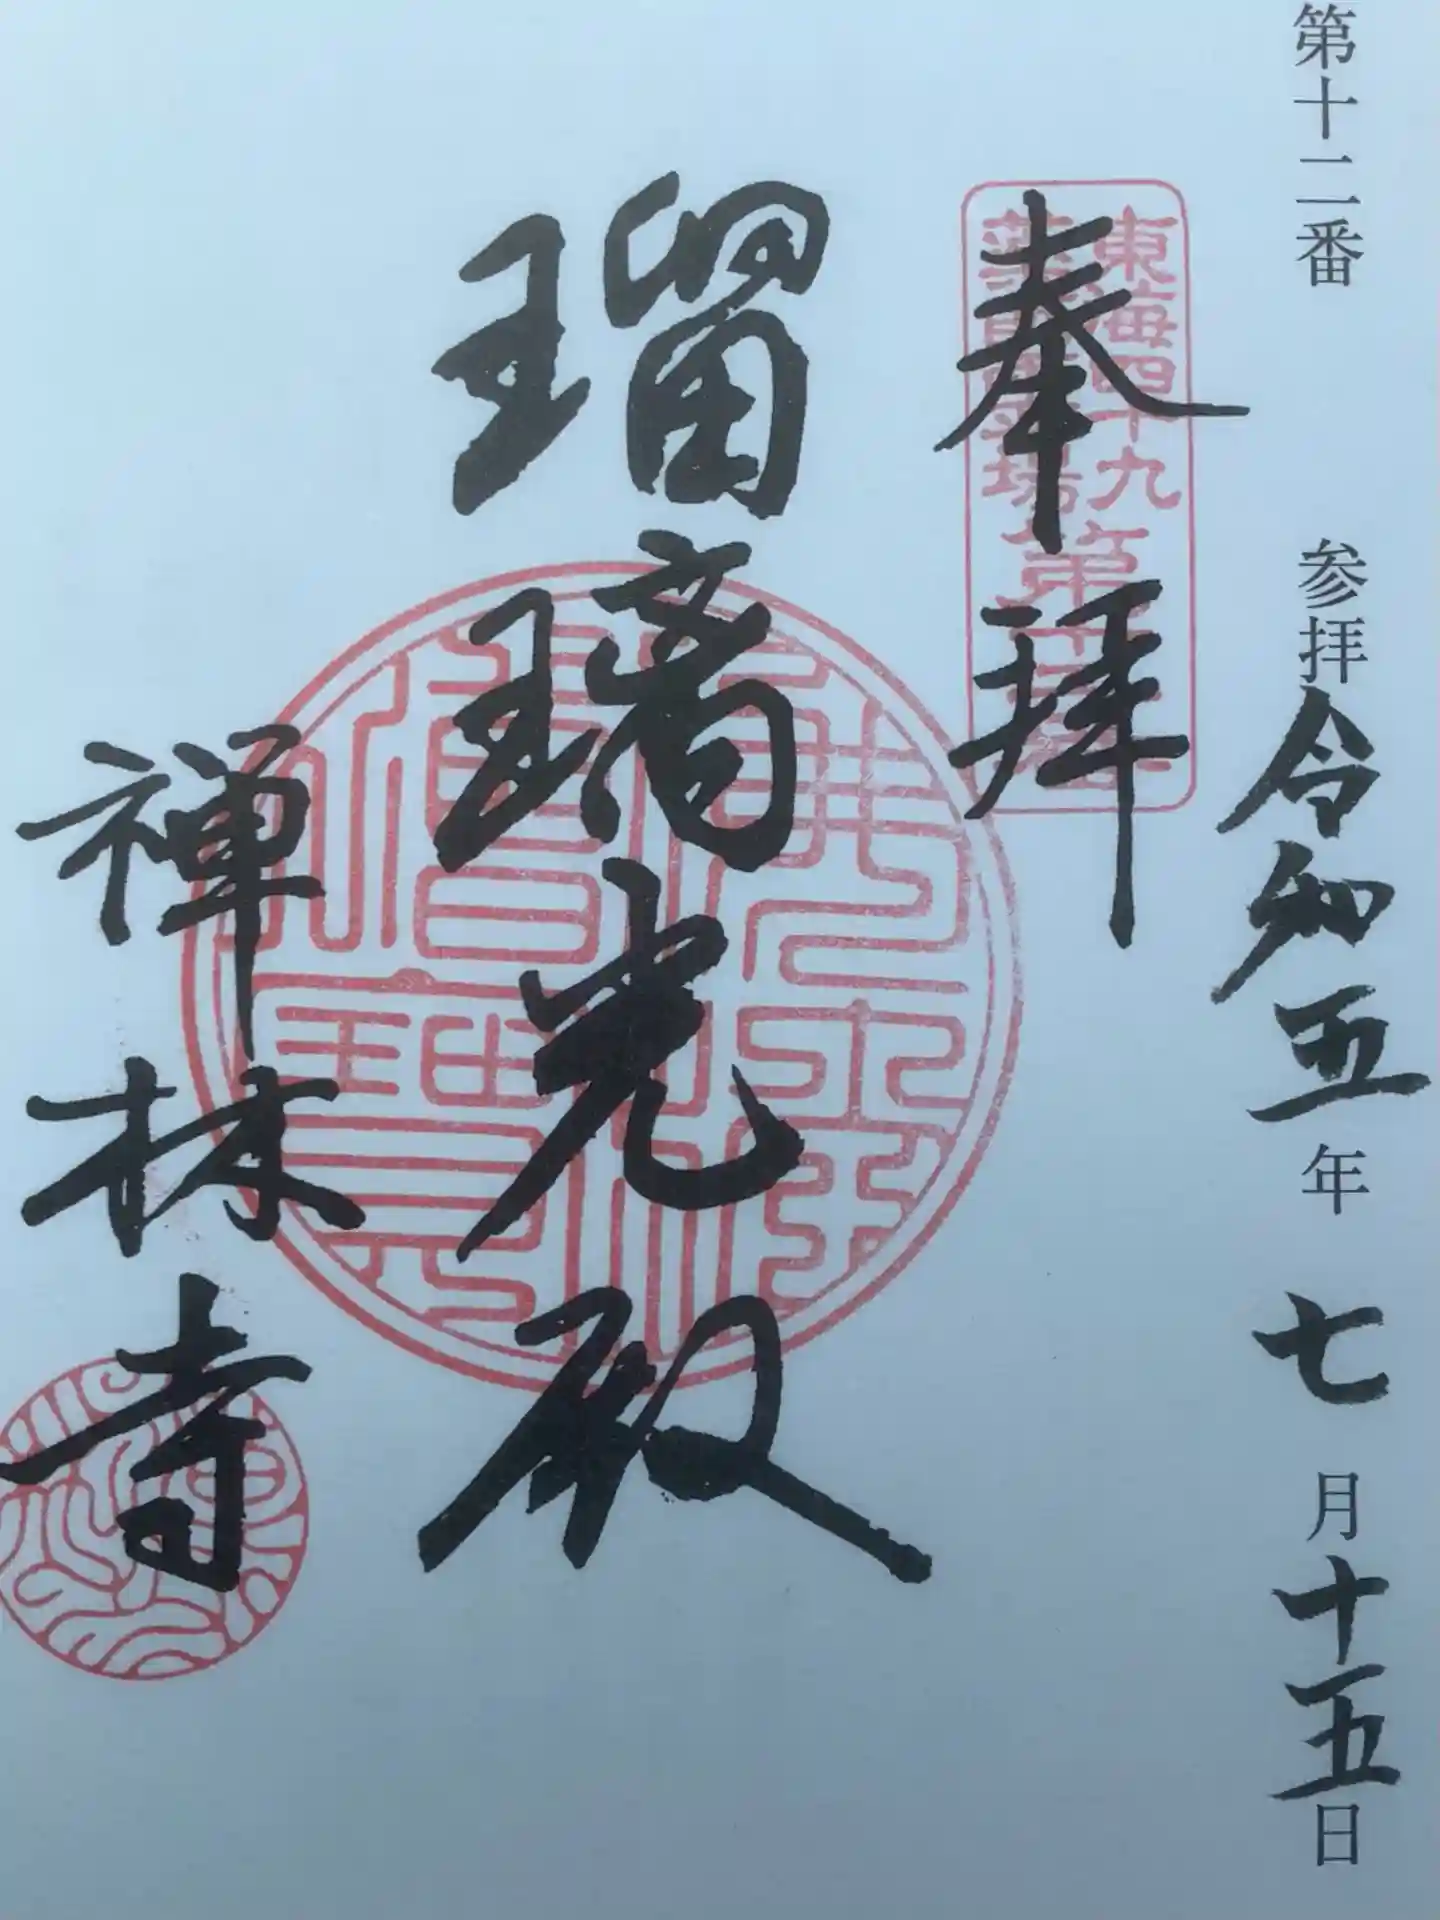 第十二番 参拝令和五年七月十五日
奉拝
東海四十九
薬師霊場
瑠璃光殿
佛法僧寶
禅林寺